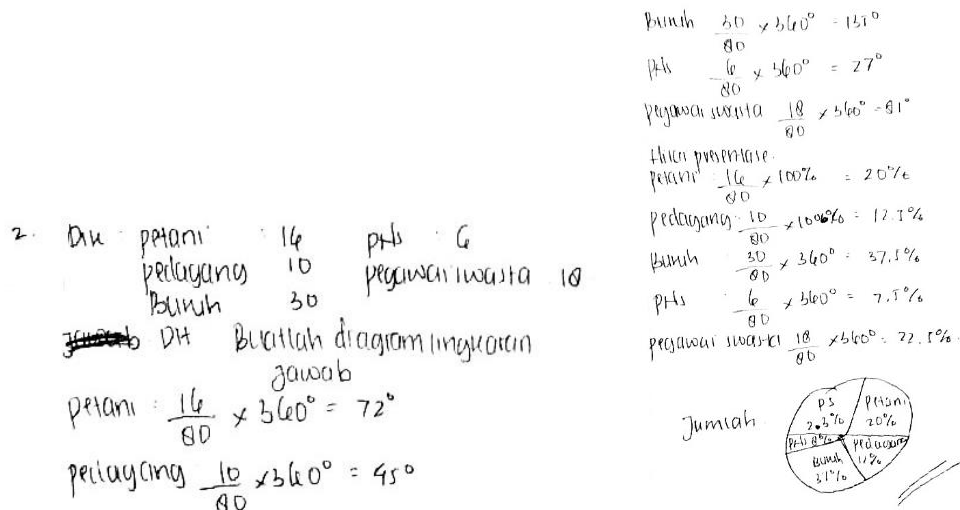 2. Dik : petani : 16 PNS : 6
pedagang 10 pegawai swasta 18
Buruh 30
DH Buatlah diagram lingkaran
jawab
petani : 16/80 x 360° = 72°
pedagang 10/80 x 360° = 45°
Buruh 30/80 x 360° = 135°
PNS 6/80 x 360° = 27°
pegawai swasta 18/80 x 360° = 81°
presentase.
petani : 16/80 x 100% = 20%
pedagang : 10/80 x 100% = 12.5%
Buruh 30/80 x 360° = 37,5%
PNS : 6/80 x 360° = 7.5%
pegawai swasta 18/80 x 360° = 22.5%
Jumlah
PS Petani
2.3% 20%
PNS 8% pedagang
Buruh 12%
37%